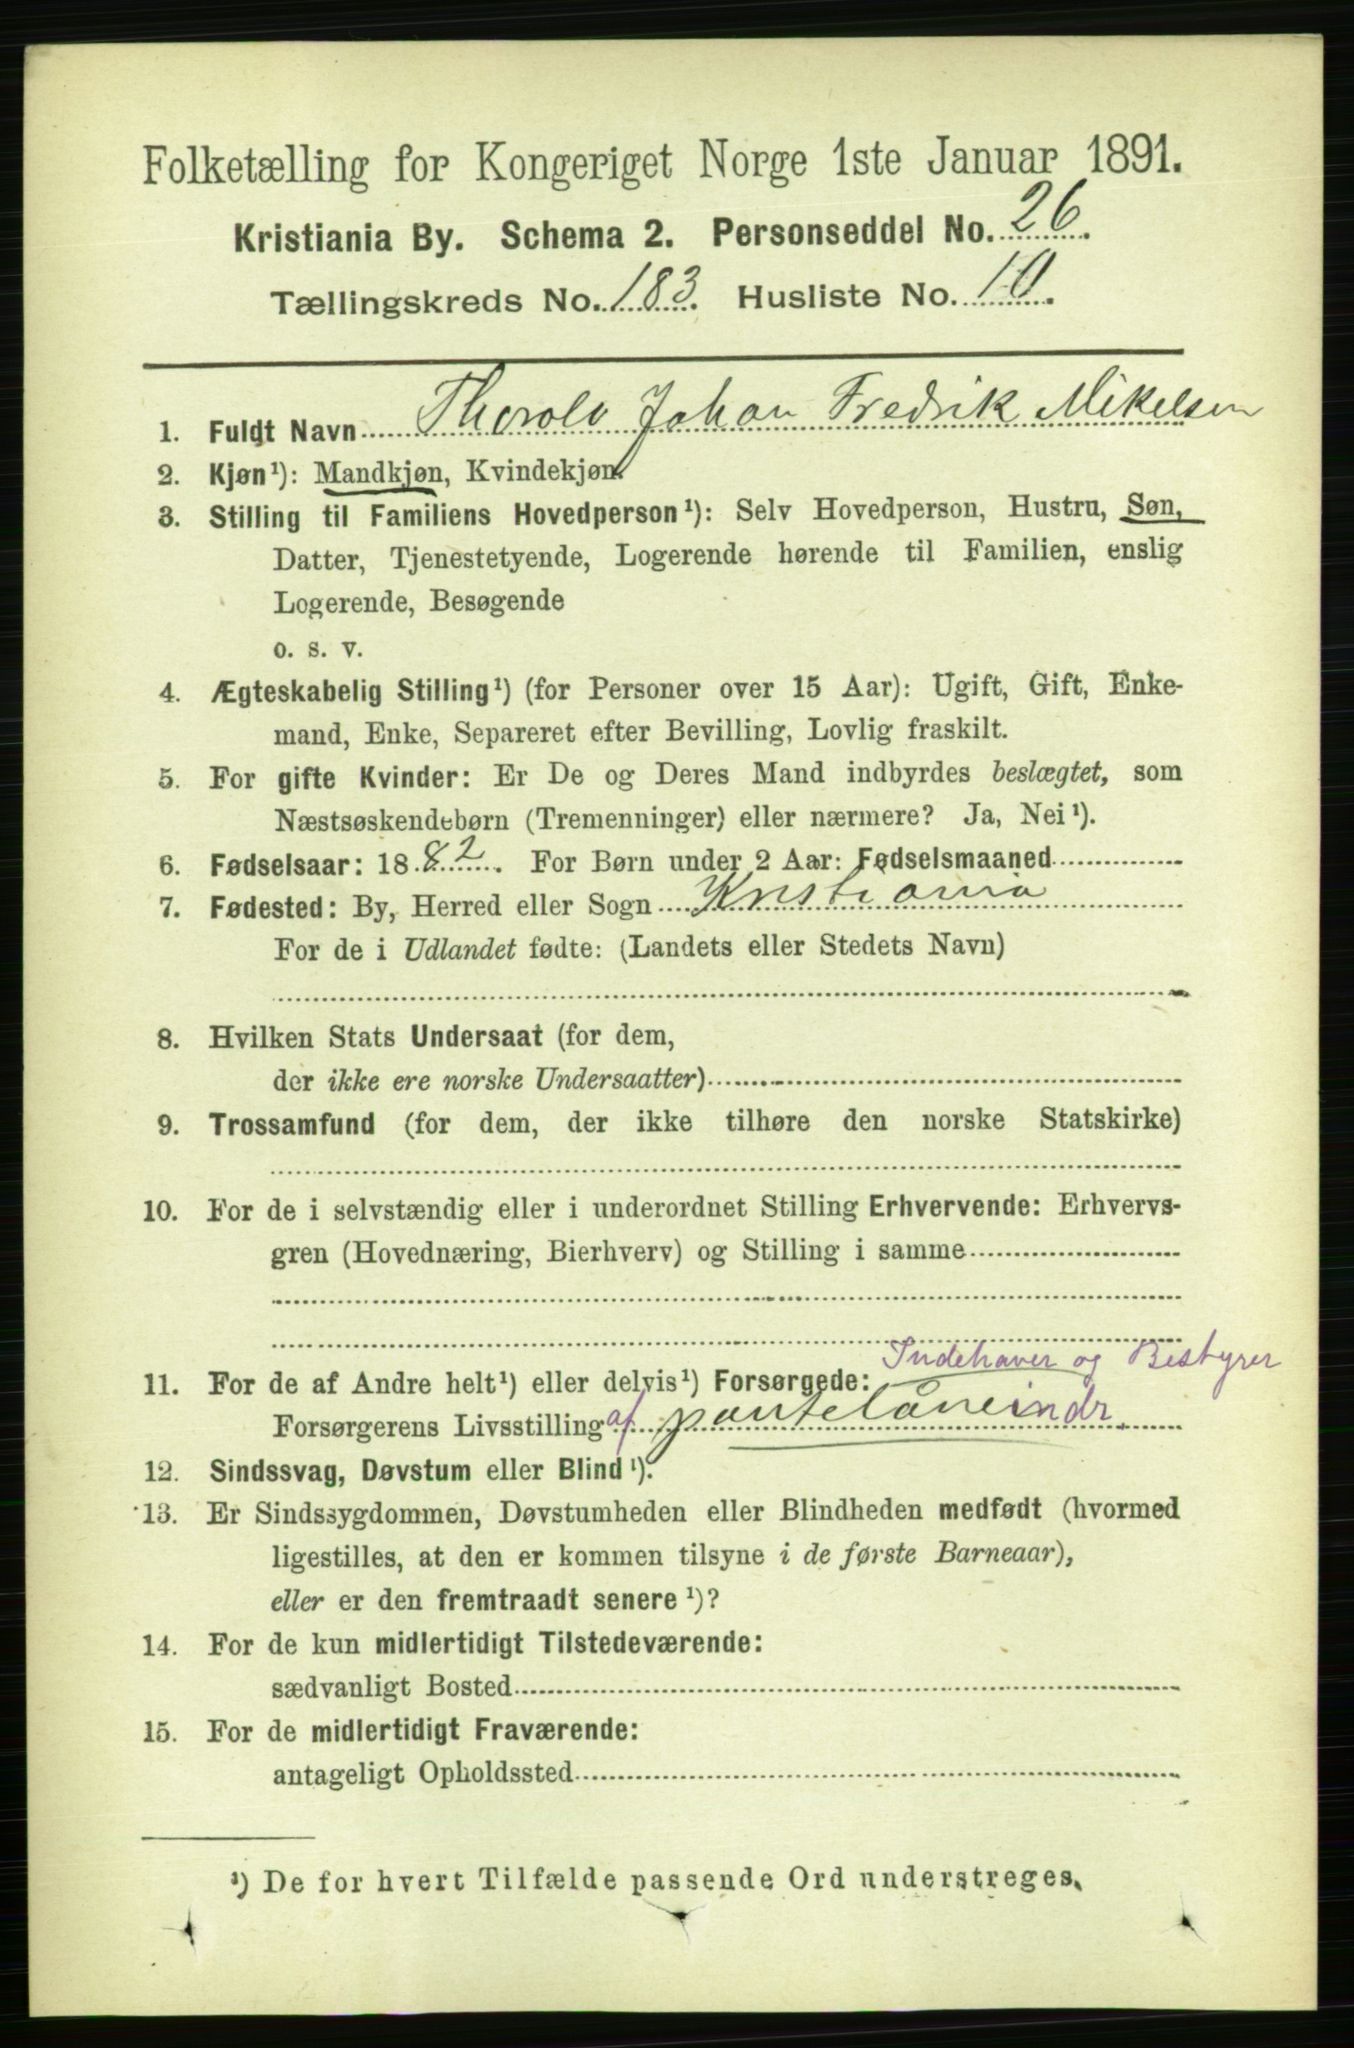 Folketælling for Kongeriget Norge 1ste Januar 1891.
Kristiania By. Schema 2. Personseddel No. 26.
Tællingskreds No. 183. Husliste No. 10.
1. Fuldt Navn Thorolv Johan Fredrik Mikelsen
2. Kjøn¹): Mandkjøn, Kvindekjøn.
3. Stilling til Familiens Hovedperson¹): Selv Hovedperson, Hustru, Søn,
Datter, Tjenestetyende, Logerende hørende til Familien, enslig
Logerende, Besøgende
o. s. v.
4. Ægteskabelig Stilling¹) (for Personer over 15 Aar): Ugift, Gift, Enke-
mand, Enke, Separeret efter Bevilling, Lovlig fraskilt.
5. For gifte Kvinder: Er De og Deres Mand indbyrdes beslægtet, som
Næstsøskendebørn (Tremenninger) eller nærmere? Ja, Nei¹).
6. Fødselsaar: 1882. For Børn under 2 Aar: Fødselsmaaned
7. Fødested: By, Herred eller Sogn Kristiania
For de i Udlandet fødte: (Landets eller Stedets Navn)
8. Hvilken Stats Undersaat (for dem,
der ikke ere norske Undersaatter)
9. Trossamfund (for dem, der ikke tilhøre den norske Statskirke)
10. For de i selvstændig eller i underordnet Stilling Erhvervende: Erhvervs-
gren (Hovednæring, Bierhverv) og Stilling i samme
Indehaver og Bestyrer
11. For de af Andre helt¹) eller delvis¹) Forsørgede:
Forsørgerens Livsstilling af pantelåneindr.
12. Sindssvag, Døvstum eller Blind¹).
13. Er Sindssygdommen, Døvstumheden eller Blindheden medfødt (hvormed
ligestilles, at den er kommen tilsyne i de første Barneaar),
eller er den fremtraadt senere¹)?
14. For de kun midlertidigt Tilstedeværende:
sædvanligt Bosted
15. For de midlertidigt Fraværende:
antageligt Opholdssted
¹) De for hvert Tilfælde passende Ord understreges.